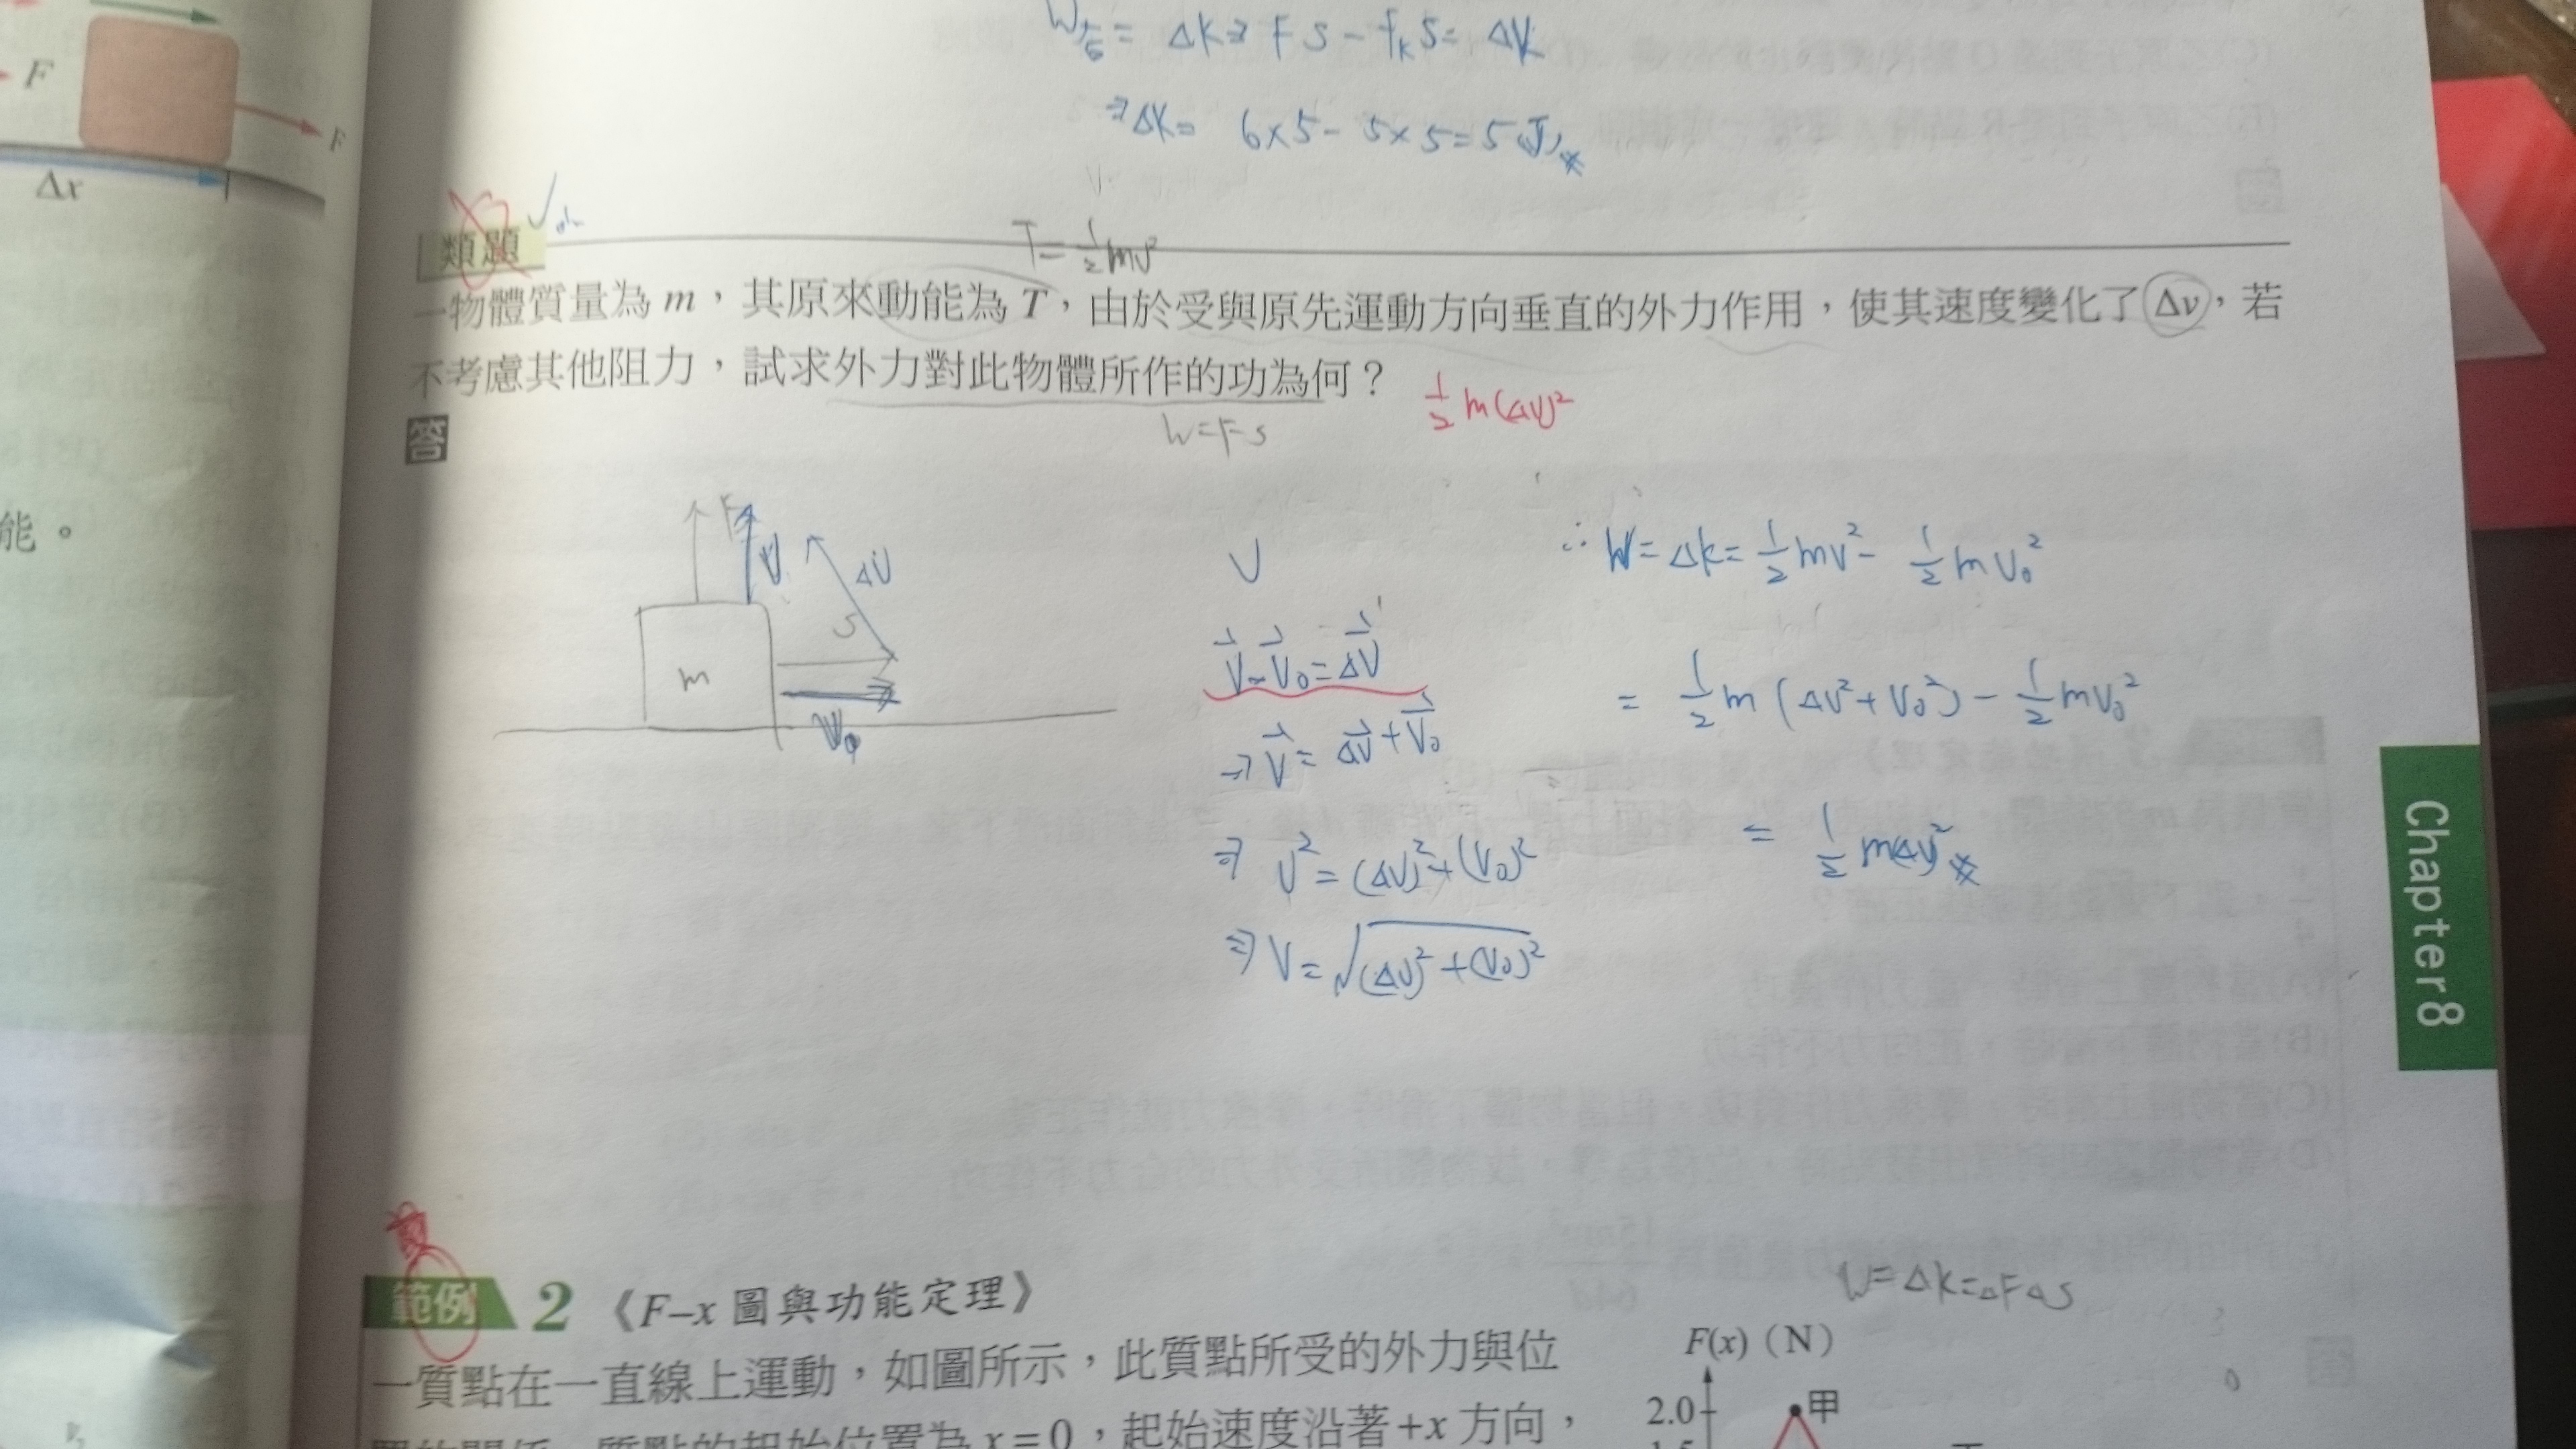 W合 = ΔK ⇒ FS - fₖS = ΔK
⇒ ΔK = 6×5 - 5×5 = 5(J)
F
F
Δx
能。
類題
T = ½mv²
一物體質量為 m，其原來動能為 T，由於受與原先運動方向垂直的外力作用，使其速度變化了 Δv，若
不考慮其他阻力，試求外力對此物體所作的功為何？
½m(ΔV)²
W=FS
答
F
V
ΔV
S
m
V₀
V
V - V₀ = ΔV
⇒ V = ΔV + V₀
⇒ V² = (ΔV)² + (V₀)²
⇒ V = √(ΔV)² + (V₀)²
∴ W = ΔK = ½mV² - ½mV₀²
= ½m(ΔV² + V₀²) - ½mV₀²
= ½m(ΔV)²
Chapter 8
W = ΔK = ΔFΔS
範例 2 《F–x 圖與功能定理》
一質點在一直線上運動，如圖所示，此質點所受的外力與位
置的關係，質點的起始位置為 x = 0，起始速度沿著 +x 方向，
F(x)（N）
2.0
甲
1.5